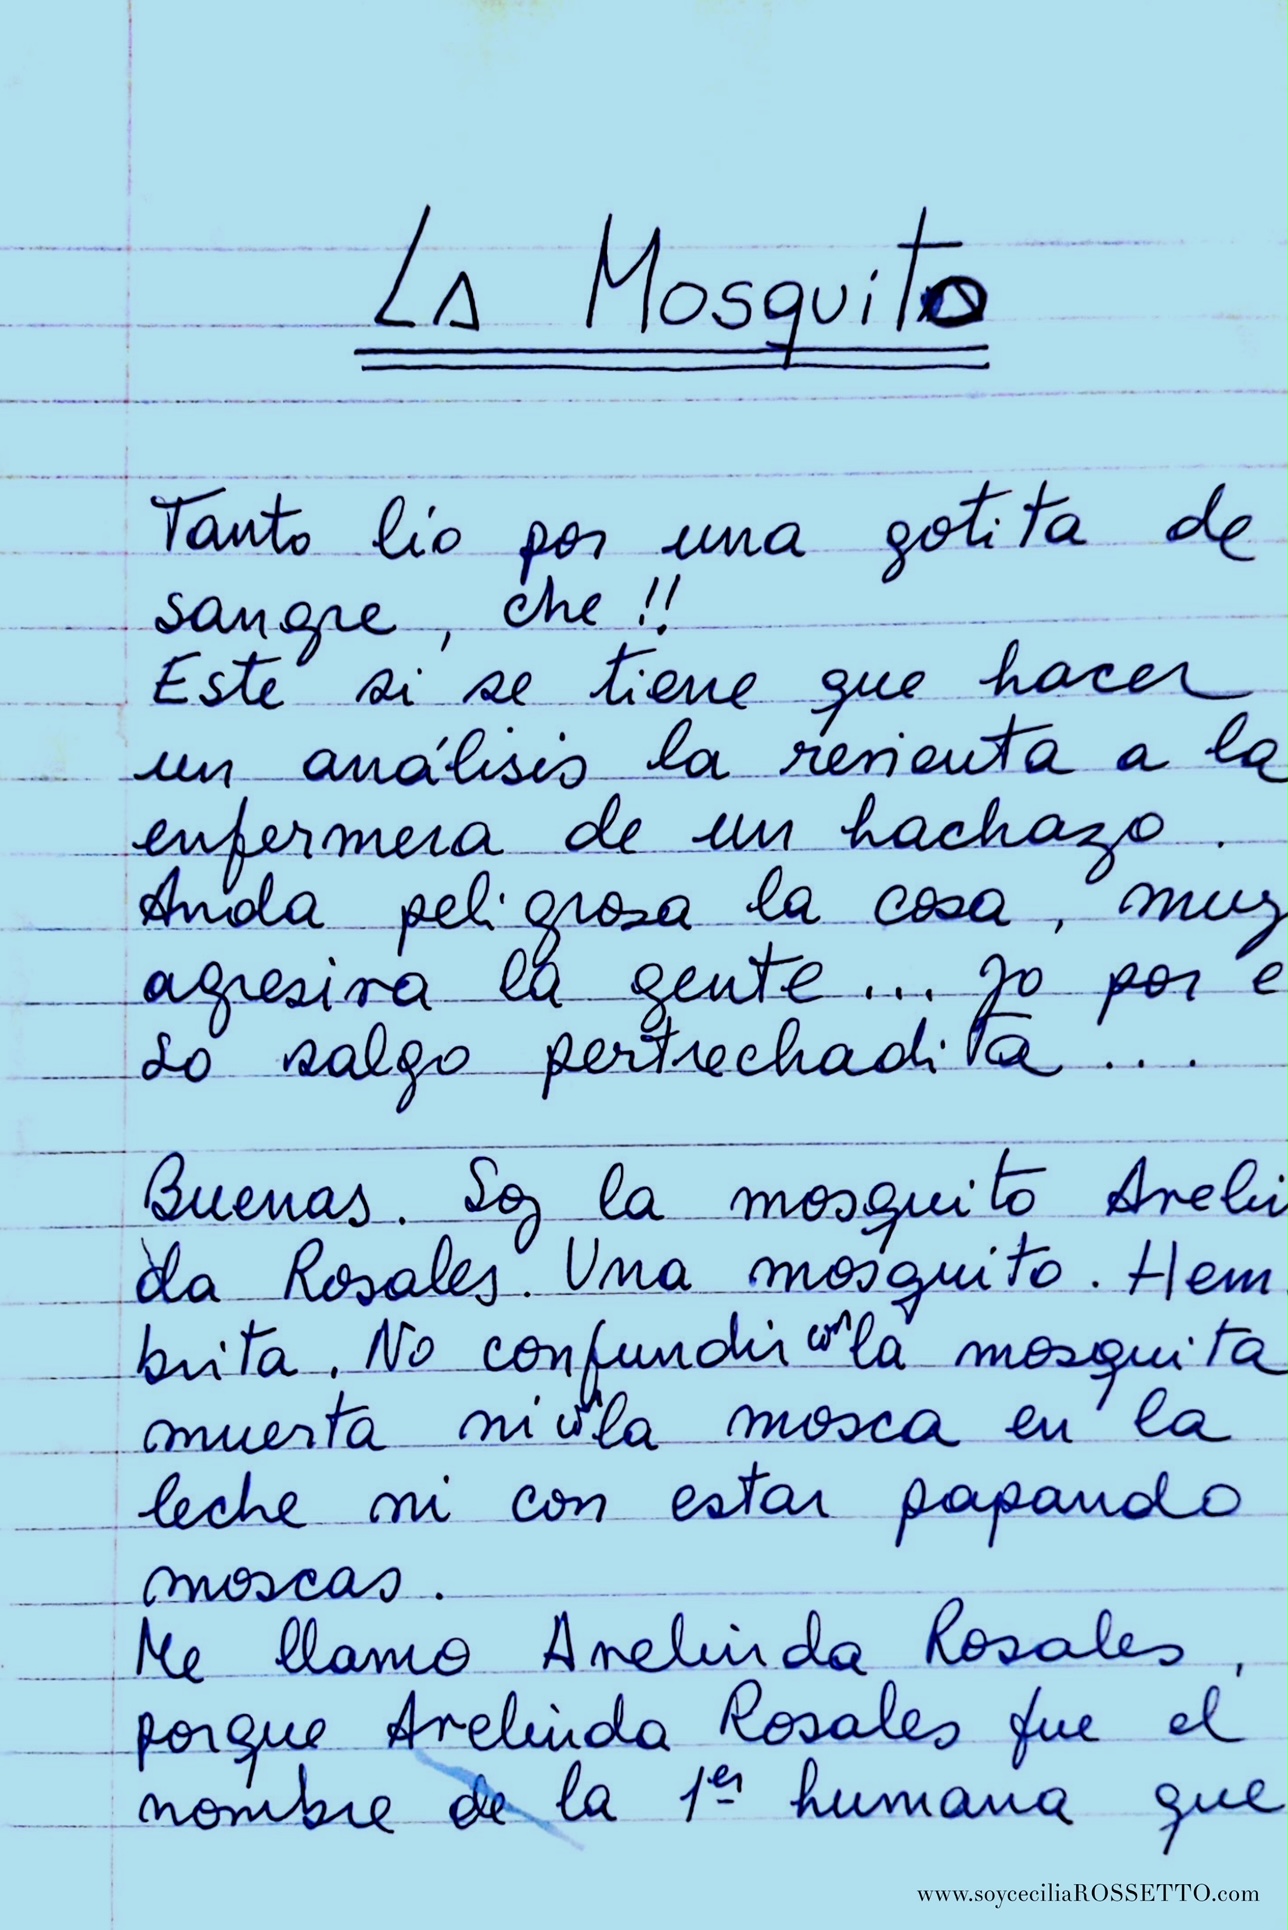 La Mosquito
Tanto lío por una gotita de
sangre, che!!
Este si se tiene que hacer
un análisis la revienta a la
enfermera de un hachazo.
Anda peligrosa la cosa, muy
agresiva la gente... Yo por e
so salgo pertrechadita...
Buenas. Soy la mosquito Arelin
da Rosales. Una mosquito. Hem
brita. No confundir con la mosquita
muerta ni con la mosca en la
leche ni con estar papando
moscas.
Me llamo Arelinda Rosales,
porque Arelinda Rosales fue el
nombre de la 1er humana que
www.soyceciliaROSSETTO.com